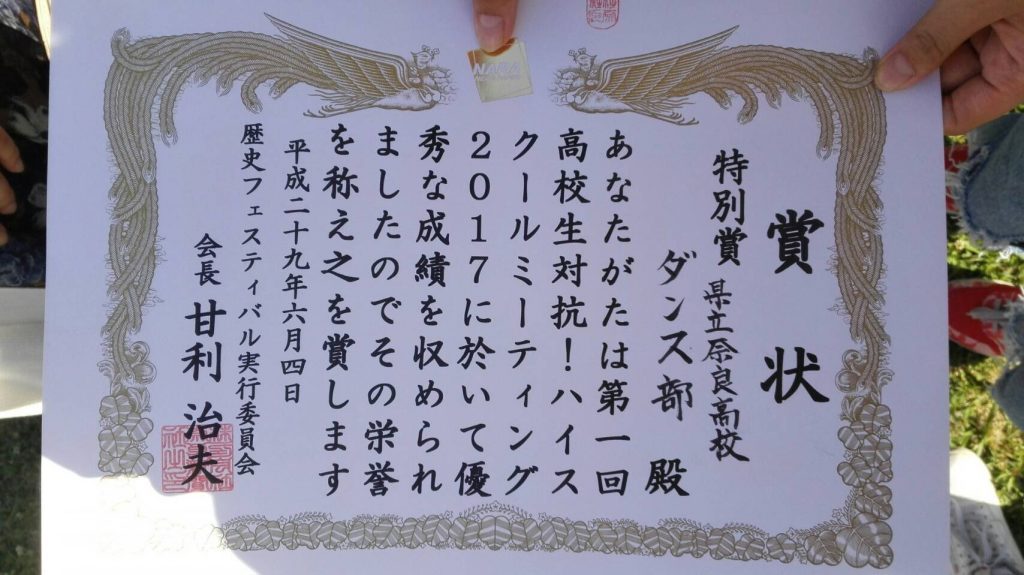 賞状
特別賞
県立奈良高校
ダンス部 殿
あなたがたは第一回
高校生対抗！ハイス
クールミーティング
2017に於いて優
秀な成績を収められ
ましたのでその栄誉
を称え之を賞します
平成二十九年六月四日
歴史フェスティバル実行委員会
会長 甘利 治夫
NARA